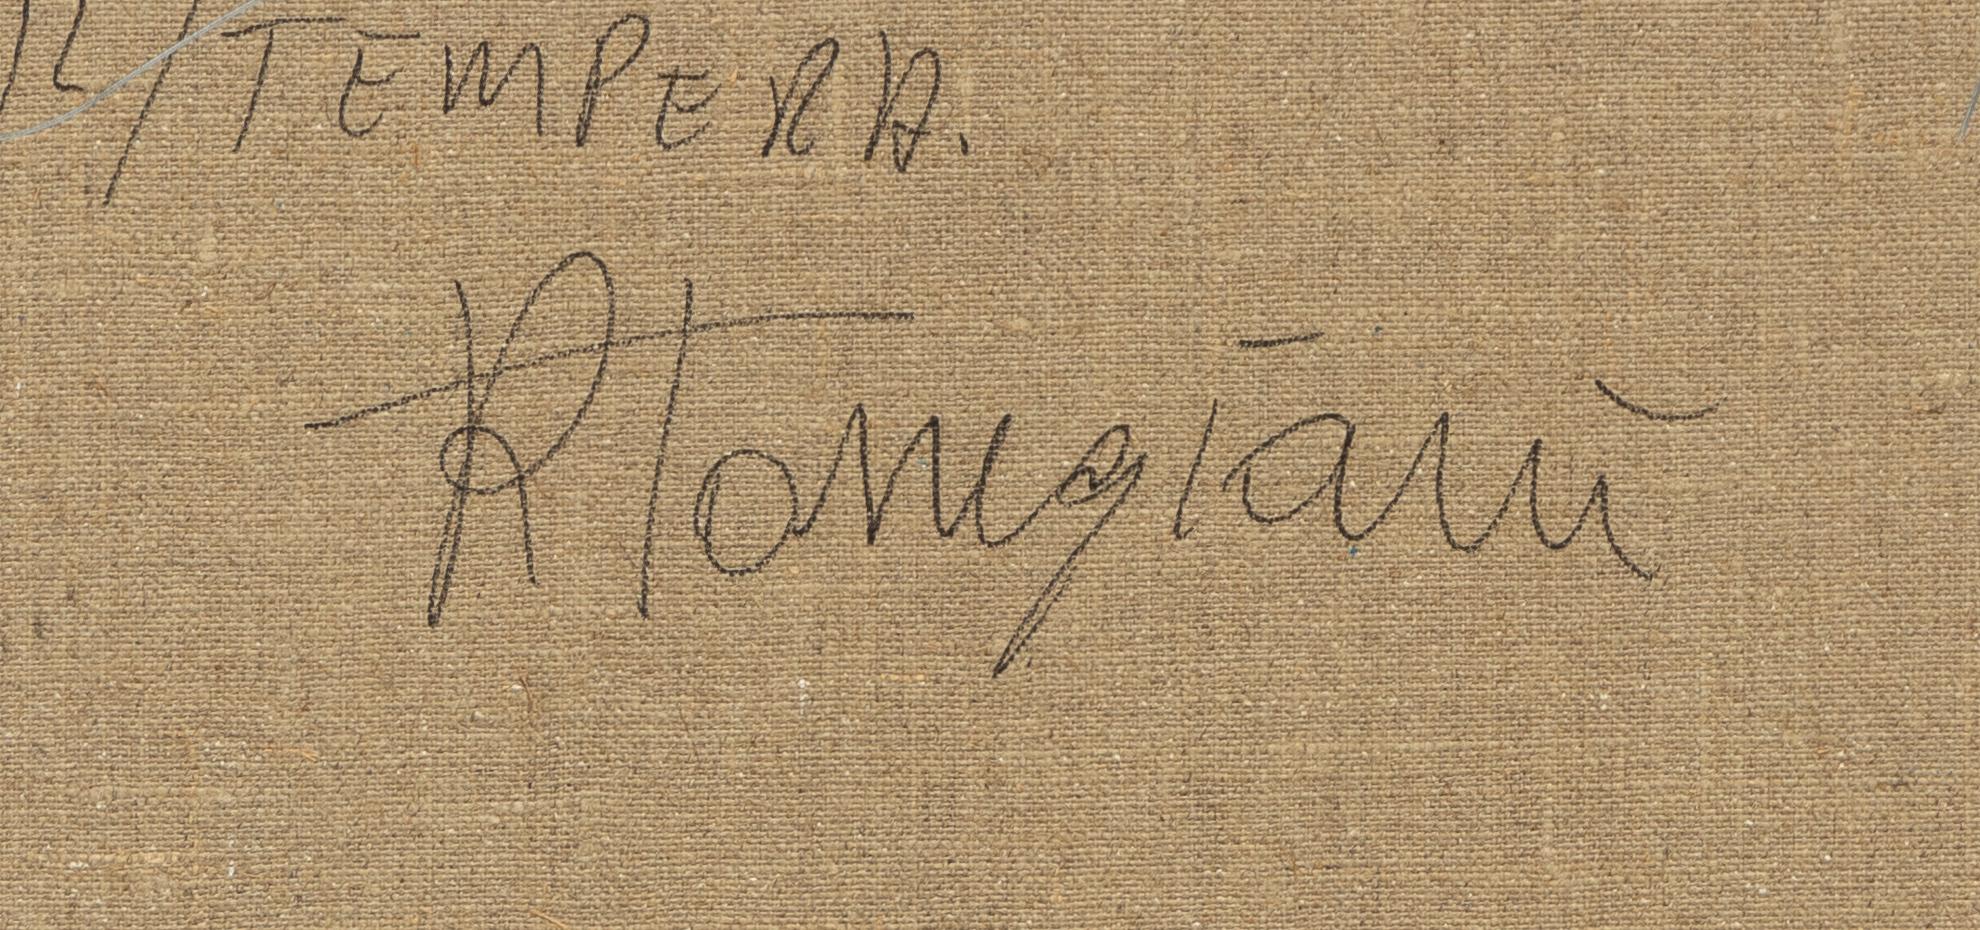 /TEMPERA.
RTongiani